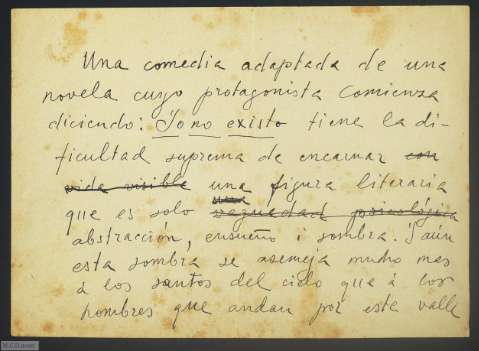 Una comedia adaptada de una
novela cuyo protagonista comienza
diciendo: Yo no existo tiene la di-
ficultad suprema de encarnar con
vida visible una figura literaria
que es solo una vaguedad psicológica
abstracción, ensueño i sombra. I aún
esta sombra se asemeja mucho mas
á los santos del cielo que á los
hombres que andan por este valle